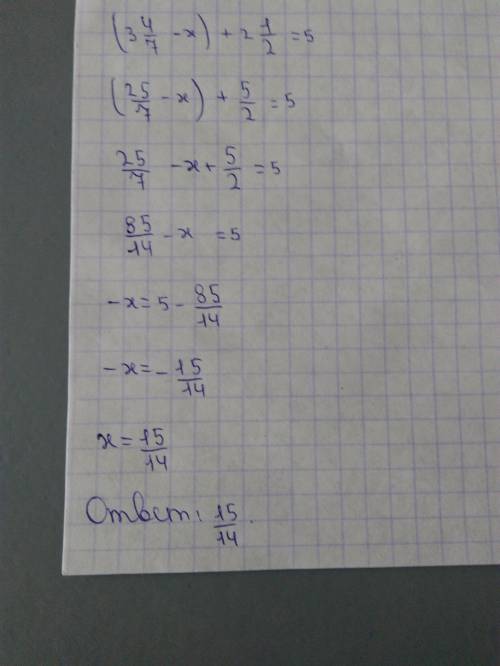 (3 4/7 - x) + 2 1/2 = 5
(25/7 - x) + 5/2 = 5
25/7 - x + 5/2 = 5
85/14 - x = 5
-x = 5 - 85/14
-x = - 15/14
x = 15/14
Ответ: 15/14.